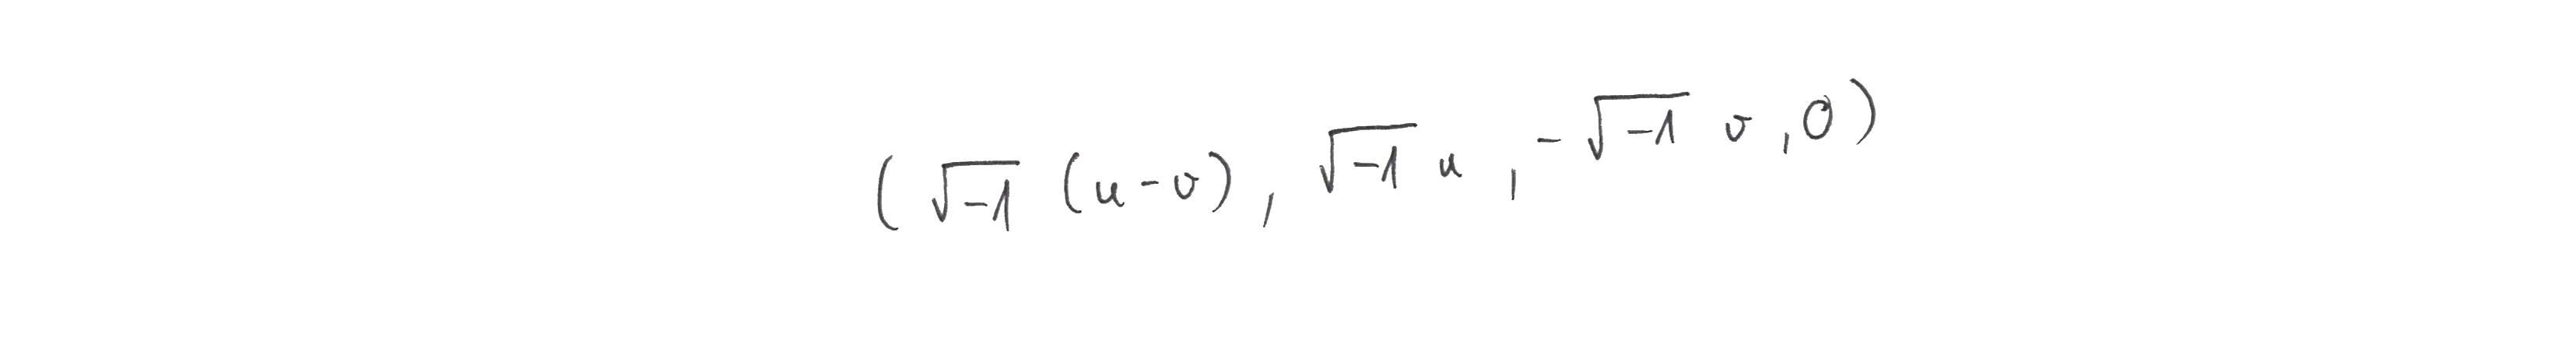 (√-1 (u-v), √-1 u, -√-1 v, 0)